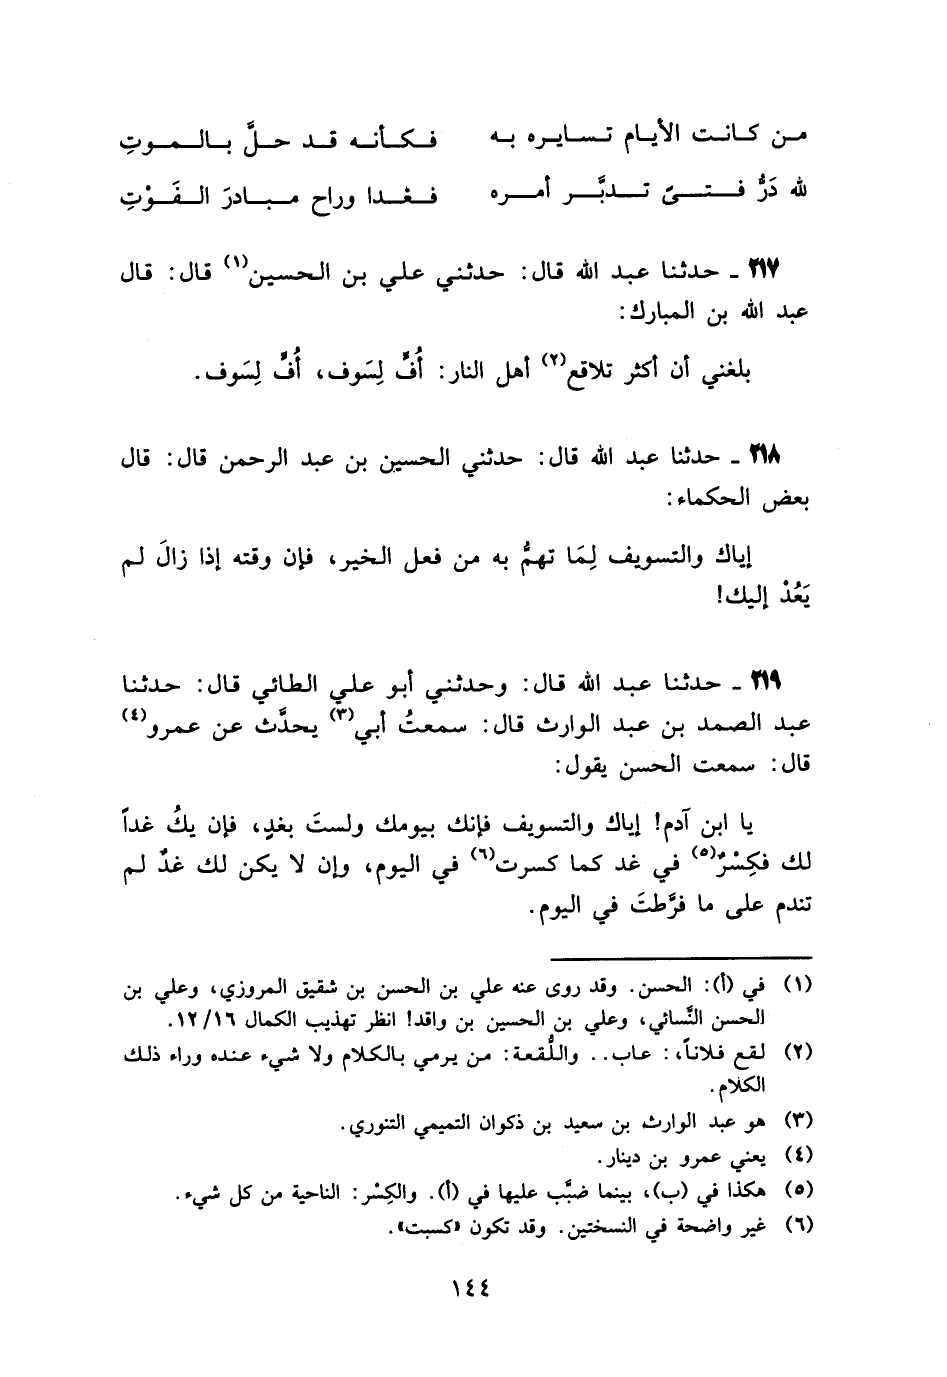 من كانت الأيام تسايره به فكأنه قد حلَّ بالموتِ
لله دَرُّ فتىً تدبَّر أمره فغدا وراح مبادرَ الفَوْتِ
٢١٧ ـ حدثنا عبد الله قال: حدثني علي بن الحسين(١) قال: قال
عبد الله بن المبارك:
بلغني أن أكثر تلاقع(٢) أهل النار: أُفٍّ لِسَوف، أُفٍّ لِسَوف.
٢١٨ ـ حدثنا عبد الله قال: حدثني الحسين بن عبد الرحمن قال: قال
بعض الحكماء:
إياك والتسويف لِمَا تهمُّ به من فعل الخير، فإن وقته إذا زالَ لم
يَعُدْ إليك!
٢١٩ ـ حدثنا عبد الله قال: وحدثني أبو علي الطائي قال: حدثنا
عبد الصمد بن عبد الوارث قال: سمعتُ أبي(٣) يحدَّث عن عمرو(٤)
قال: سمعت الحسن يقول:
يا ابن آدم! إياك والتسويف فإنك بيومك ولستَ بغدٍ، فإن يكُ غداً
لك فكِسْرٌ(٥) في غد كما كسرت(٦) في اليوم، وإن لا يكن لك غدٌ لم
تندم على ما فرَّطتَ في اليوم.
(١) في (أ): الحسن. وقد روى عنه علي بن الحسن بن شقيق المروزي، وعلي بن
الحسن النَّسائي، وعلي بن الحسين بن واقد! انظر تهذيب الكمال ١٢/١٦.
(٢) لقع فلاناً،: عاب.. واللُّقعة: من يرمي بالكلام ولا شيء عنده وراء ذلك
الكلام.
(٣) هو عبد الوارث بن سعيد بن ذكوان التميمي التنوري.
(٤) يعني عمرو بن دينار.
(٥) هكذا في (ب)، بينما ضبَّب عليها في (أ). والكِسْر: الناحية من كل شيء.
(٦) غير واضحة في النسختين. وقد تكون «كسبت».
١٤٤